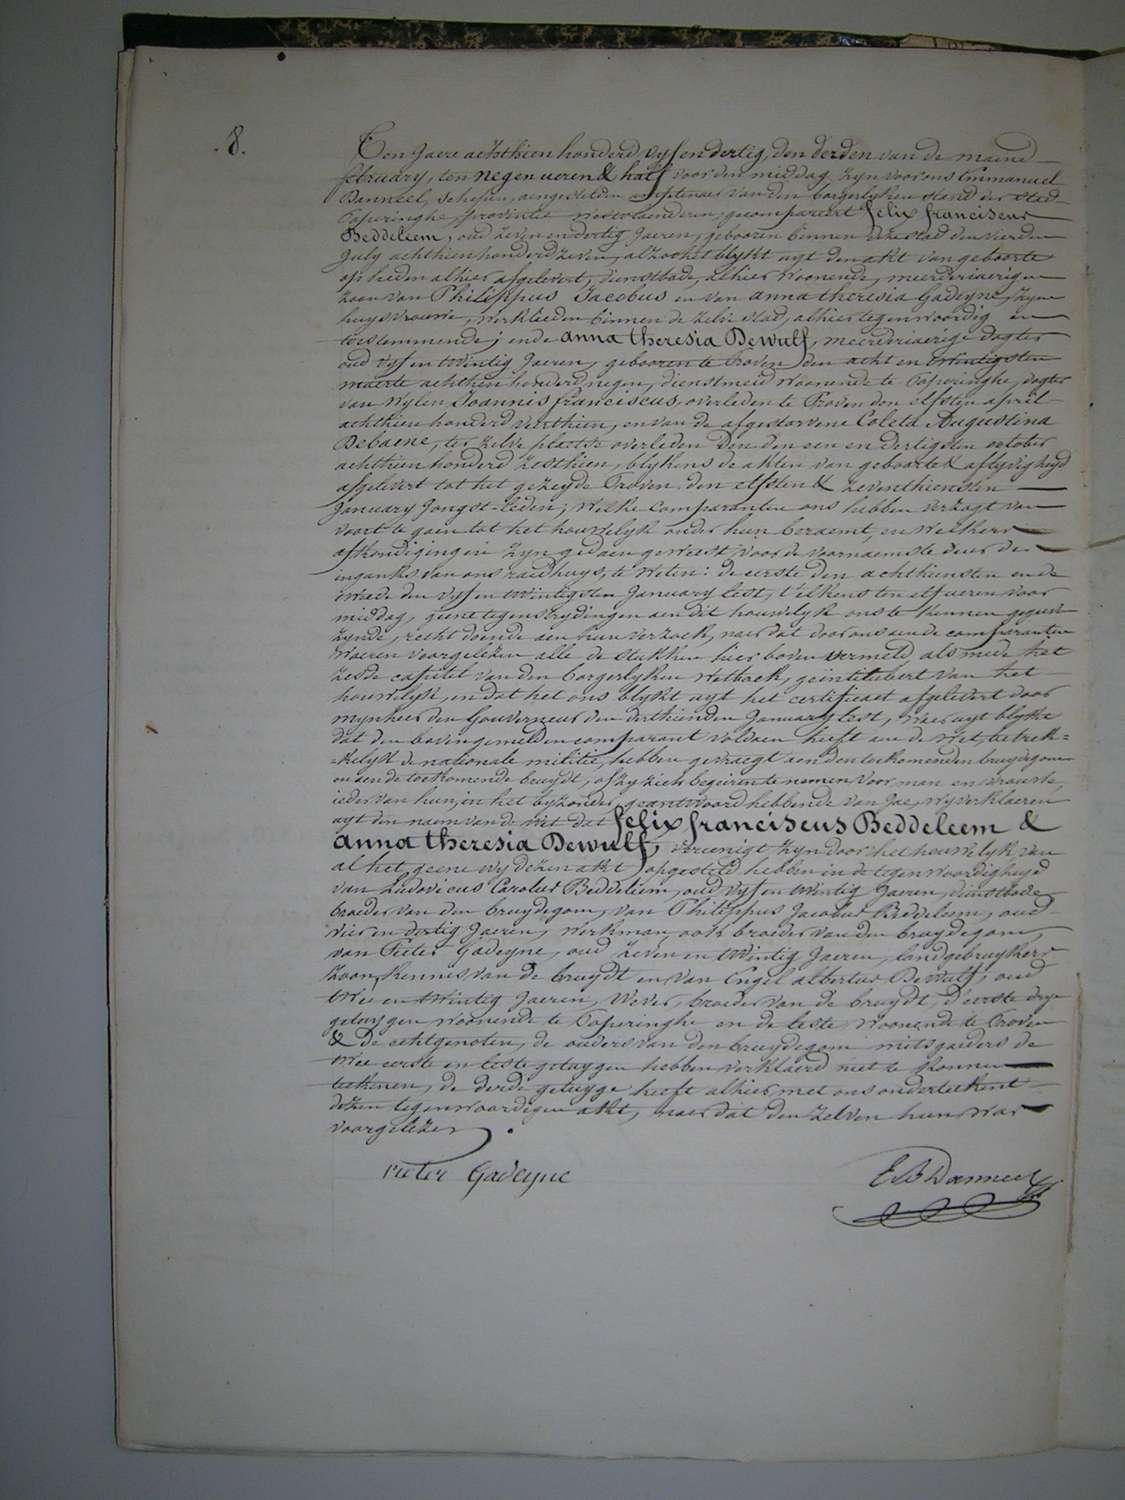 .8.
Ten Jaere achthien honderd vyf en dertig, den derden van de maend
february, ten negen ueren & half voor den middag, zyn voor ons Emmanuel
Banneel, Schepen, aengestelden officier van den borgerlyken stand der stad
Poperinghe, provintie westvlaenderen, gecompareert felix franciscus
Beddeleem, oud zeven en dertig Jaeren, gebooren binnen deze stad den vierden
July achthien honderd zeven, alzoo het blykt uyt den akt van geboorte
op heden alhier afgelevert, dienstbode, alhier woonende, meerderjaerigen
zoon van Philippus Jacobus en van anna theresia Gadeyne, zyne
huysvrouwe, werklieden binnen de zelve stad, alhier tegenwoordig en
toestemmende; ende anna theresia Dewulf, meerderjaerige dogter
oud vyf en twintig Jaeren, gebooren te Proven den acht en twintigsten
maerte achthien honderd negen, dienstmeid woonende te Poperinghe, dogter
van wylen Joannis franciscus, overleden te Proven den elfsten april
achthien honderd veirthien, en van de afgestorvene Coleta Augustina
Debaene, ter zelve plaetse overleden den een en dertigsten october
achthien honderd zesthien, blykens de akten van geboorte & aflyvigheyd
afgelevert tot het gezeyde Proven den elfsten & zeventhiensten
January Jongst-leden; welke comparanten ons hebben verzogt van
voort te gaen tot het houwelyk onder hun beraemt, en welkers
afkondigingen zyn gedaen geweest voor de voornaemste deur der
ingank van ons raedhuys, te weten: de eerste den achthiensten en de
tweede den vyf en twintigsten January lest, t'elkens ten elf ueren voor
middag, geene tegenstrydingen aen dit houwelyk ons te kennen gegeven
zynde, recht doende aen hun verzoek, naer dat door ons aen de comparanten
waeren voorgelezen alle de stukken hier boven vermeld als mede het
zesde capitel van den borgerlyken wetboek, geïntituleert van het
houwelyk, en dat het ons blykt uyt het certificaet afgelevert door
mynheer den Gouverneur den derthienden January lest, waer uyt blykt
dat den bovengemelden comparant voldaen heeft aen de wet, betrek=
=kelyk de nationale militie, hebben gevraegt aen den toekomenden bruydegom
en aen de toekomende bruydt, of zy zich begeiren te nemen voor man en vrouwe,
ieder van hun, in het byzonder, geantwoord hebbende van Jae, wy verklaeren
uyt den naem van de wet dat felix franciscus Beddeleem &
anna theresia Dewulf, vereenigt zyn door het houwelyk, van
al het geene wy dezen akt opgesteld hebben in de tegenwoordigheyd
van Ludovicus Carolus Beddeleem, oud vyf en twintig Jaeren, dienstbode,
broeder van den bruydegom, van Philippus Jacobus Beddeleem, oud
vier en dertig Jaeren, werkman, ook broeder van den bruydegom,
van Pieter Gadeyne, oud zeven en twintig Jaeren, landgebruykers
zoon, kennis van de bruydt en van Engel albertus Dewulf, oud
twee en twintig Jaeren, wever, broeder van de bruydt, d'eerste drye
getuygen woonende te Poperinghe en de leste woonende te Proven
& de echtgenoten, de ouders van den bruydegom mitsgaeders de
twee eerste en leste getuygen hebben verklaerd niet te konnen
teekenen, de derde getuyge heeft alhier met ons onderteekent
dezen tegenwoordigen akt, naer dat den zelven hun was
voorgelezen.
Pieter Gadeyne
E B Danneel